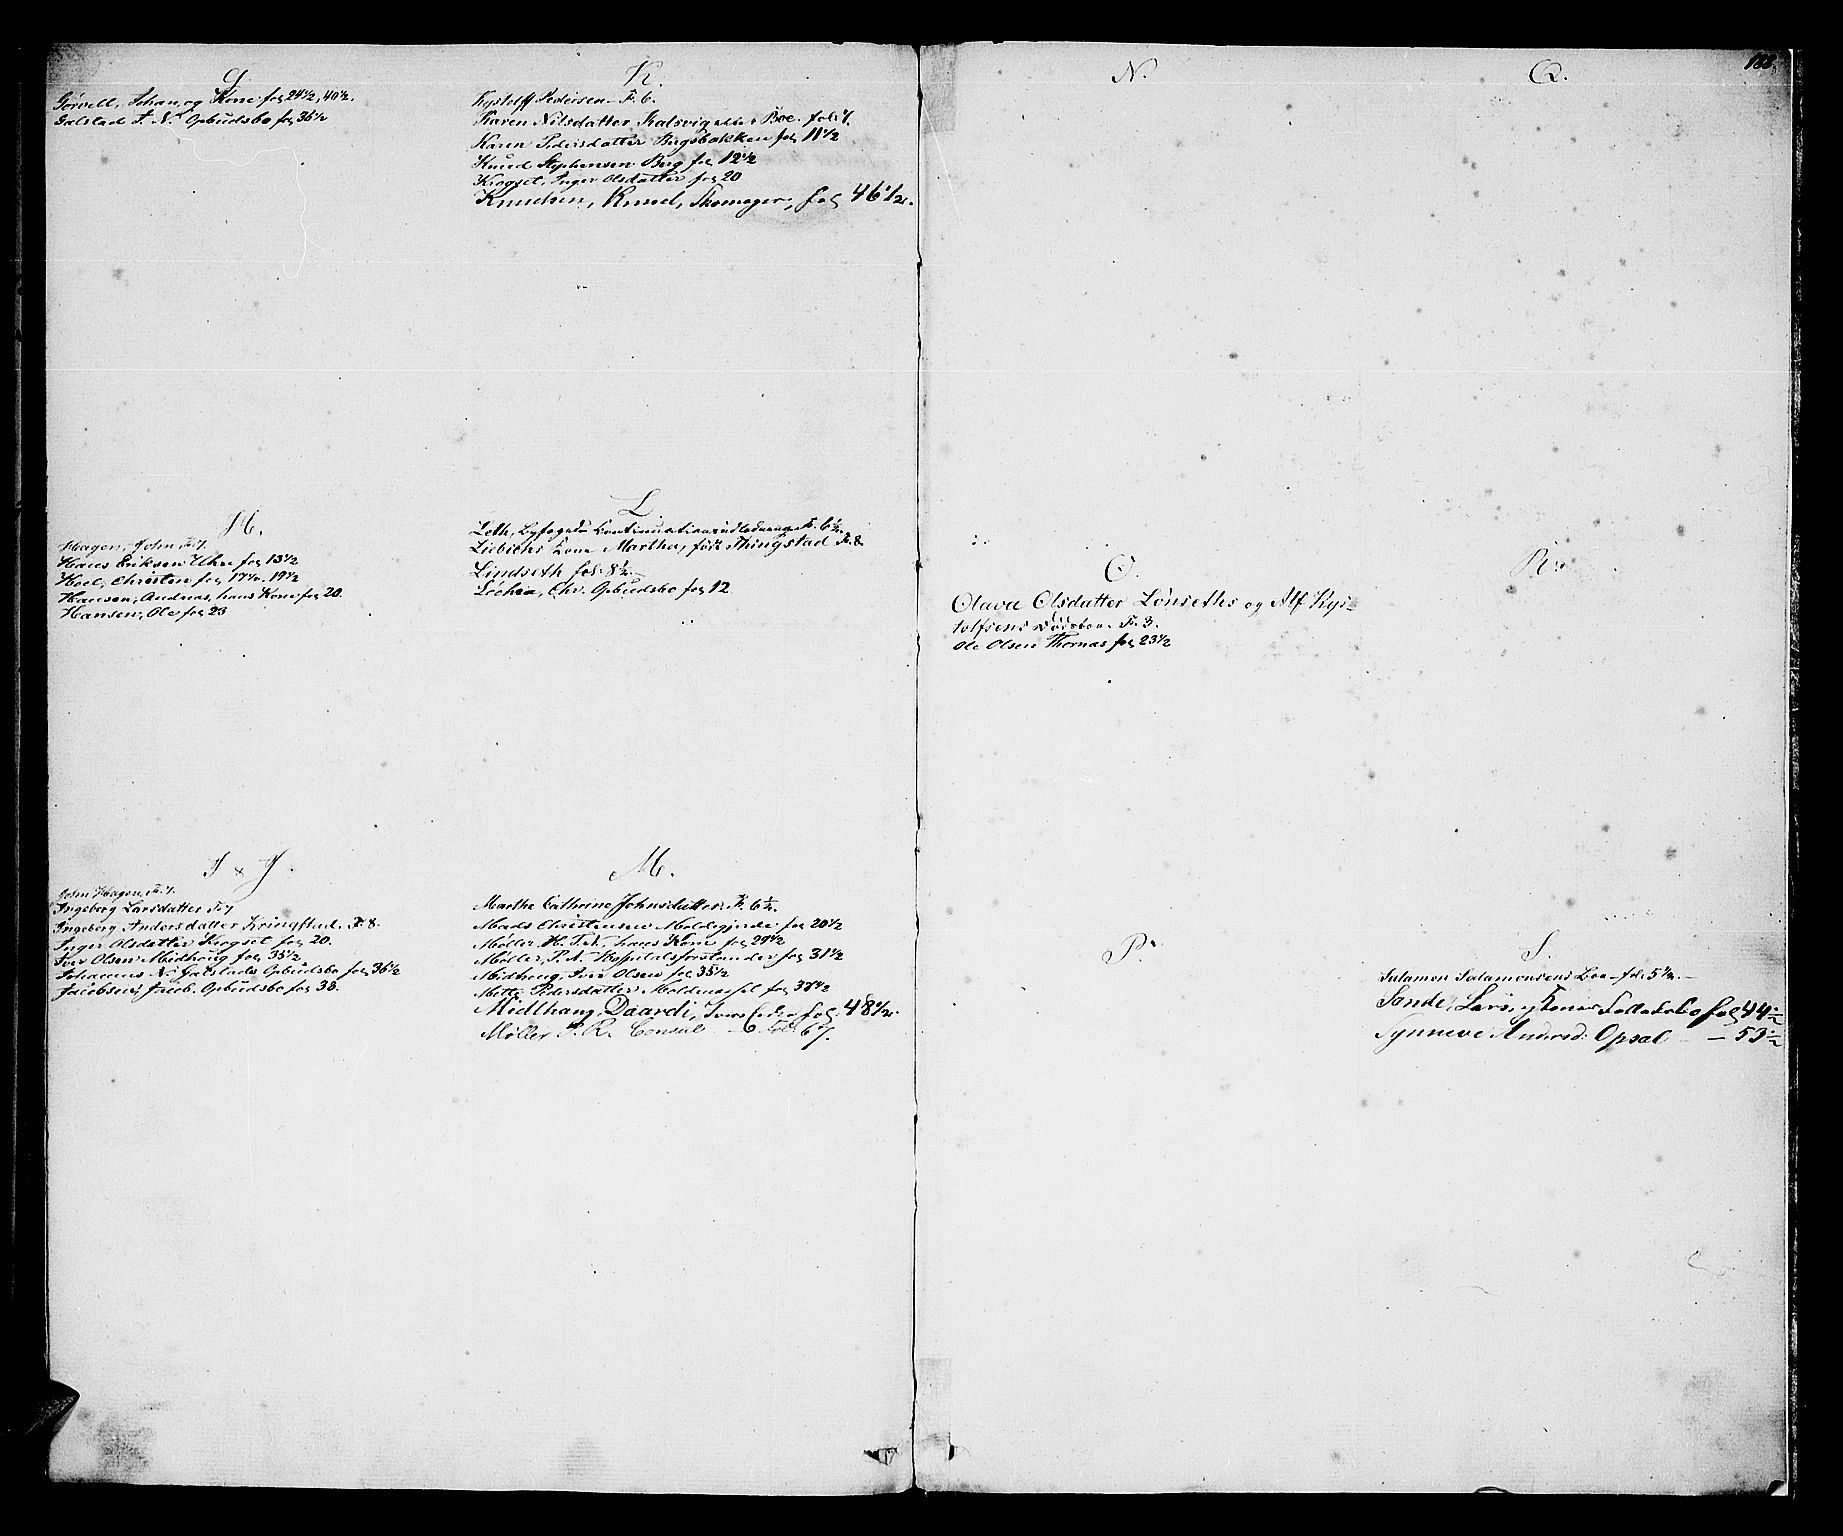 G.
Gørvell, Johan, og Kone fol 24½, 40½.
Galstad J. N. Opbudsbo fol 36½
H.
Hagen, John F. 7.
Hans Eriksen Uhre fol 13½
Hoel, Christen fol 17½. 19½
Hansen, Andreas, hans Kone fol 20
Hansen, Ole fol 23
I & J.
John Hagen, F. 7.
Ingeborg Larsdatter F. 7
Ingeborg Andersdatter Kringstad, F. 8.
Inger Olsdatter Krogset fol 20.
Iver Olsen Midhoug fol 35½
Johannes N. Galstads Opbudsbo fol 36½
Jacobsen, Jacob. Opbudsbo fol 38.
K.
Kystolff Pedersen F. 6.
Karen Nilsdatter Kalsvig Boe. fol. 7.
Karen Pedersdatter Bergsbakken fol 11½
Knud Stephensen Berg fol 12½
Krogset, Inger Olsdatter fol 20
Knudsen, Knud, Skomager, fol 46½.
L.
Leth, Byfogeds F. 6½.
Liebichs Kone Marthe, født Thingstad F. 8.
Lindseth fol. 8½.
Lochia, Chr. Opbudsbo fol 12
M.
Marthe Cathrine Johnsdatter F. 6½.
Mads Christensen Moldegjerde fol 20½
Møller, H. T. N., hans Kone fol 29½
Møller, P. N. Hospitalsforstander fol 31½
Midhoug, Iver Olsen fol 35½
Mette Pedersdatter Moldenæs fol 37½
Midthaug, Daardi, Ivers fol. 48½.
Møller P. R. Consul Fol. 67.
N.
O.
Olava Olsdatter Lønseths og Alf Kys-
tolfsens Dødsboe F. 3.
Ole Olsen Thornæs fol 23½
P.
Q.
188.
R.
S.
Salamon Salamonsens Boe fol. 5½.
Sande, Lars, og Kones Fællesbo fol 44½
Synneve Andersd: Opsal — 53½